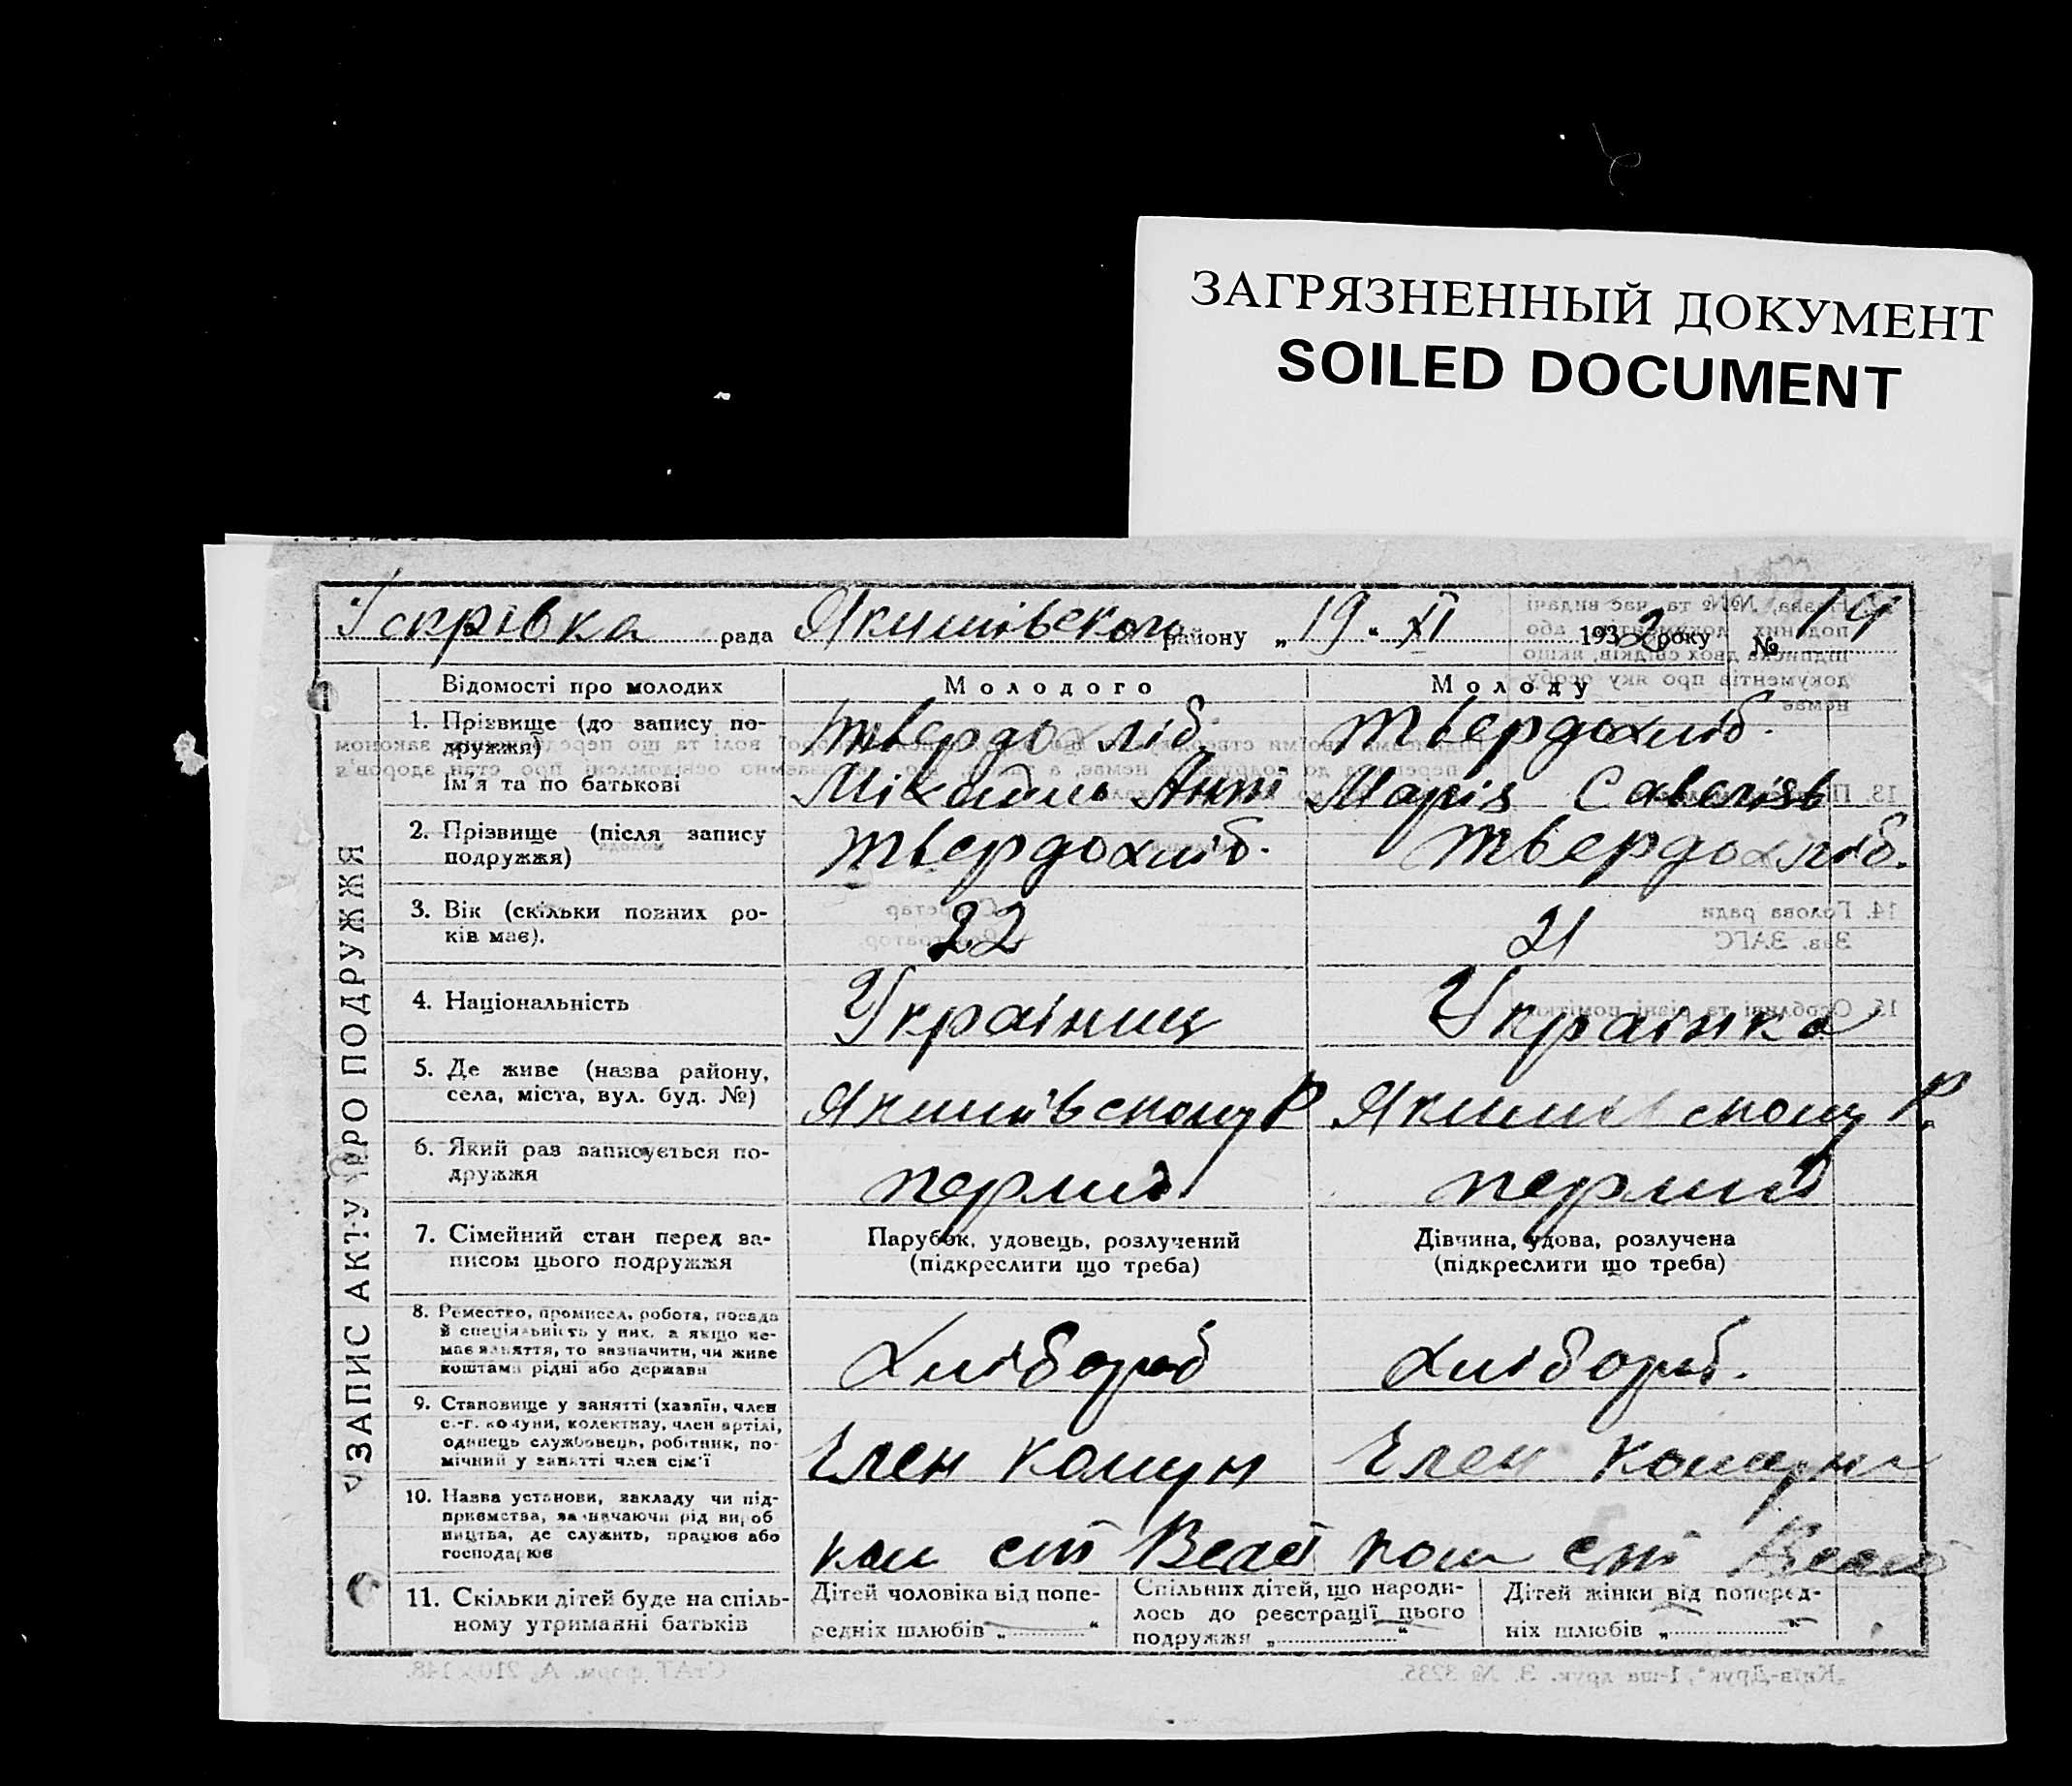 ЗАГРЯЗНЕННЫЙ ДОКУМЕНТ
SOILED DOCUMENT
Іскрівка рада Якимівського району „19“ XII 1932 року № 14
ЗАПИС АКТУ ПРО ПОДРУЖЖЯ
Відомості про молодих Молодого Молоду
1. Прізвище (до запису по- Твердохліб Твердохліб.
дружжя)
Ім'я та по батькові Марія
2. Прізвище (після запису Твердохліб. Твердохліб.
подружжя)
3. Вік (скільки повних ро- 22 21
ків має).
4. Національність Украіниц Украінка
5. Де живе (назва району,
села, міста, вул. буд. №) Якимівському Р Якимівському Р.
6. Який раз записується по- перший перший
дружжя
7. Сімейний стан перед за- Парубок, удовець, розлучений Дівчина, удова, розлучена
писом цього подружжя (підкреслити що треба) (підкреслити що треба)
8. Ремество, промисел, робота, посада
й спеціяльність у них, а якщо не-
має заняття, то зазначити, чи живе Хлібороб хлібороб.
коштами рідні або держави
9. Становище у занятті (хазяїн, член
с.-г. комуни, колективу, член артілі,
одинець службовець, робітник, по- Член комун Член комуни
мічний у занятті член сім'ї
10. Назва установи, закладу чи під-
приємства, зазначаючи рід вироб
ництва, де служить, працює або
господарює ком ком
11. Скільки дітей буде на спіль- Дітей чоловіка від попе- Спільних дітей, що народи- Дітей жінки від поперед-
ному утриманні батьків редніх шлюбів „—“ лось до реєстрації цього ніх шлюбів „—“
подружжя „—“
СтАТ форм. А₅ 210×148.
„Київ-Друк“, 1-ша друк. З. № 3235.